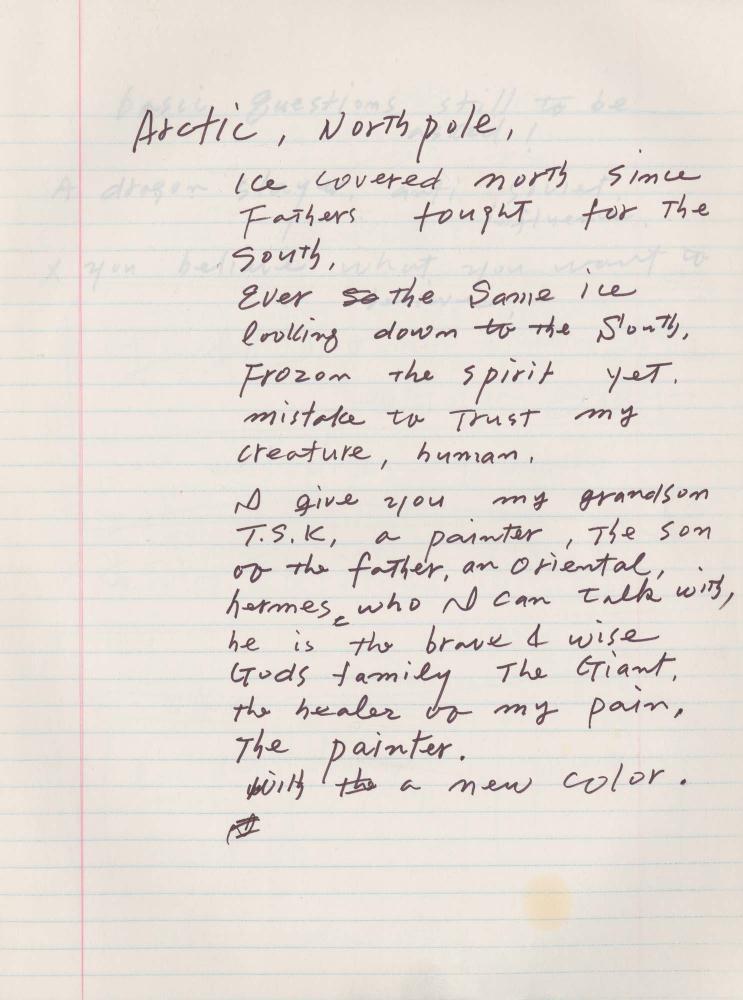 Arctic, North pole,
Ice covered north since
Fathers fought for the
South,
Ever so the Same ice
looking down to the South,
Frozon the spirit yet.
mistake to Trust my
creature, human.
I give you my grandson
T.S.K, a painter, The son
of the father, an Oriental,
hermes, who I can talk with,
he is the brave & wise
Gods family The Giant,
the healer of my pain,
The painter.
with the a new color.
basic questions, still to be
A dragon
& you believe what you want to